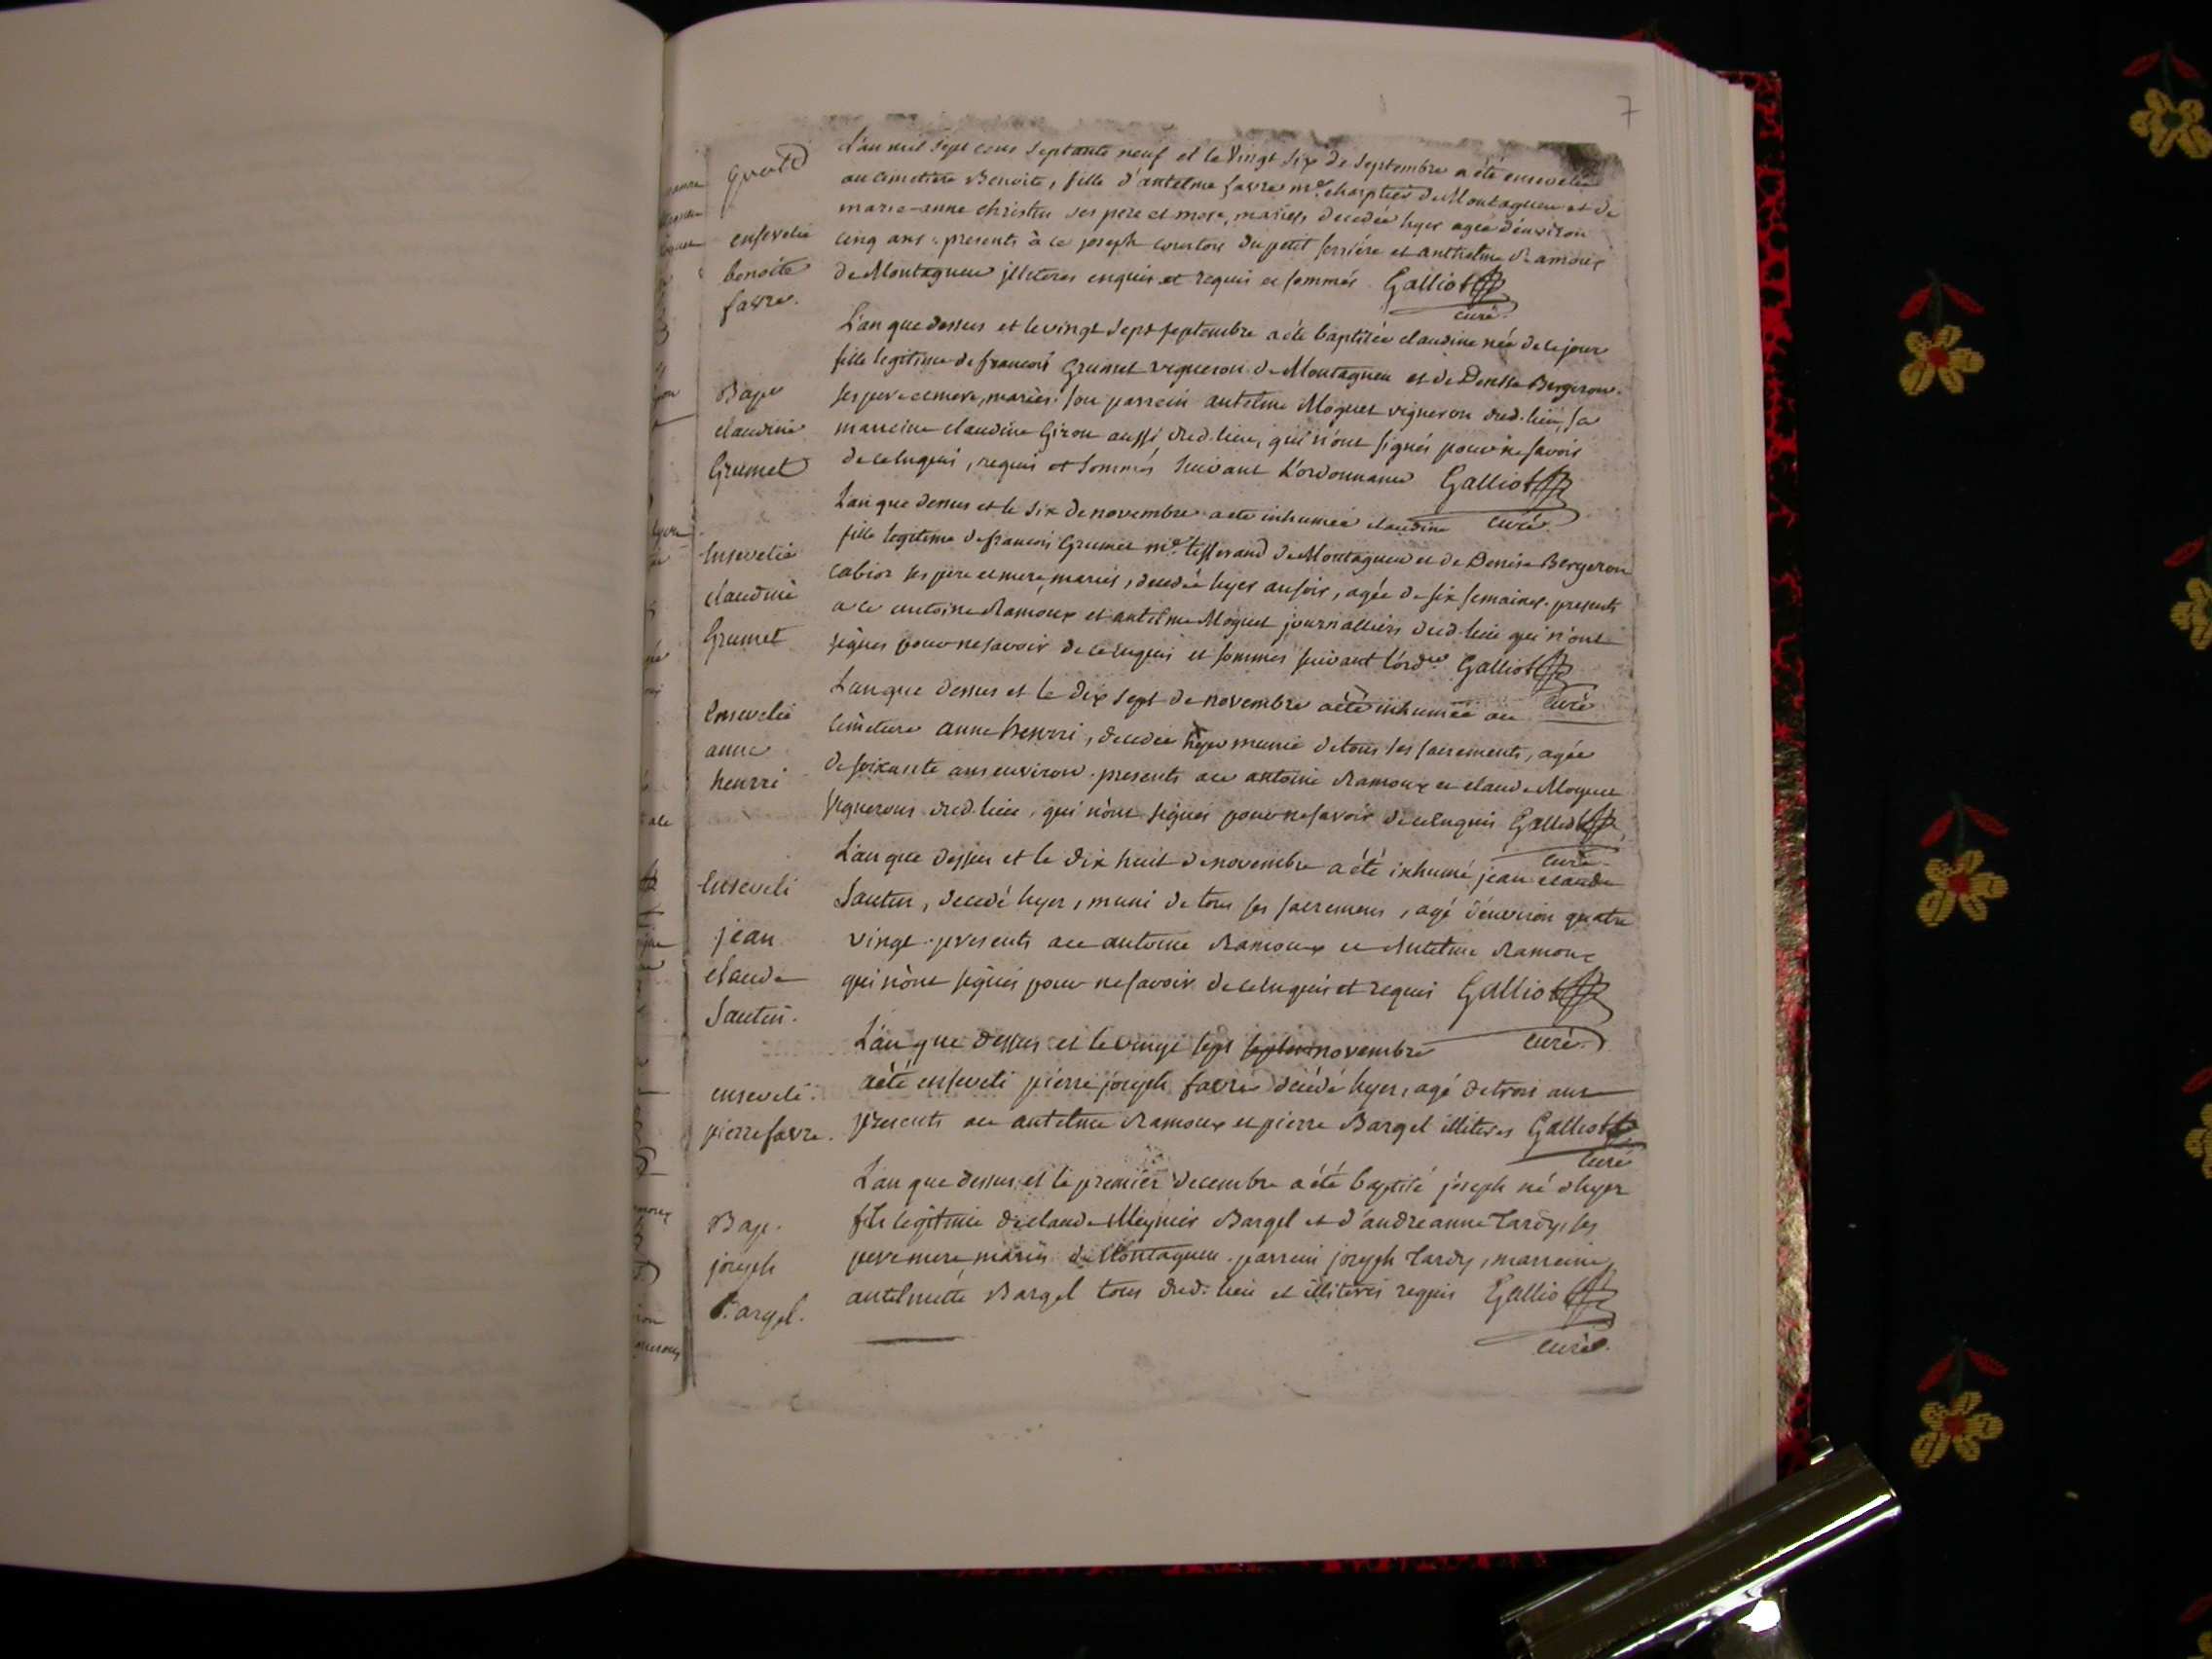 7
L'an mil sept cens septante neuf et le vingt six de septembre a été ensevelie
au cimetiere Benoite, fille d'antelme favre m.e charptier de Montagneu et de
marie-anne christin ses pere et mere, mariés decedée hyer agée d'environ
ensevelie
cinq ans : presents à ce joseph courtois du petit serriére et anthelme Ramoux
benoite
de Montagneu illiteres enquis et requis et sommés Galliot
favre.
curé.
L'an que dessus et le vingt sept septembre a été baptisée claudine née de ce jour
fille legitime de francois Grumet vigneron de Montagneu et de Denise Bergeron
Bap.
ses pere et mere, mariés. son parrein antelme Moguet vigneron dud. lieu, sa
claudine
marreine claudine Giron aussi dud. lieu, qui n'ont signés pour ne savoir
Grumet
de ce enquis, requis et sommés suivant L'ordonnance Galliot
curé.
L'an que dessus et le six de novembre a ete inhumée claudine
ensevelie
fille legitime de francois Grumet m.e tisserand de Montagneu et de Denise Bergeron
claudine
cabior ses pere et mere, mariés, decedée hyer au soir, agée de six semaines. presents
a ce antoine Ramoux et antelme Moguet journalliers dud. lieu qui n'ont
Grumet
signés pour ne savoir de ce enquis et sommés suivant l'ord.ce Galliot
curé
L'an que dessus et le dix sept de novembre a été inhumée au
Ensevelie
cimetiere anne henrri, decedée hyer munie de tous ses sacrements, agée
anne
de soixante ans environ. presents a ce antoine Ramoux et claude Moguet
henrri
vignerons dud. lieu, qui n'ont signés pour ne savoir de ce enquis Galliot
curé.
L'an que dessus et le dix huit de novembre a été inhumé jean claude
Enseveli
Sautin, decedé hyer, muni de tous ses sacremens, agé d'environ quatre
jean
vingt. presents a ce antoine Ramoux et Antelme Ramoux
claude
qui n'ont signés pour ne savoir de ce enquis et requis Galliot
Sautin.
curé.
L'an que dessus et le vingt sept septem novembre
a été enseveli pierre joseph favre décédé hyer, agé de trois ans
enseveli.
pierre favre.
presents a ce antelme Ramoux et pierre Bargel illiteres Galliot
curé
L'an que dessus et le premier decembre a été baptisé joseph né d'hyer
Bap.
fils legitime de claude Meynier Bargel et d'andreanne Tardy, ses
joseph
pere mere, mariés de Montagneu. parrein joseph Tardy, marreine
Bargel.
antelmette Bargel tous dud. lieu et illiterés requis Galliot
curé.